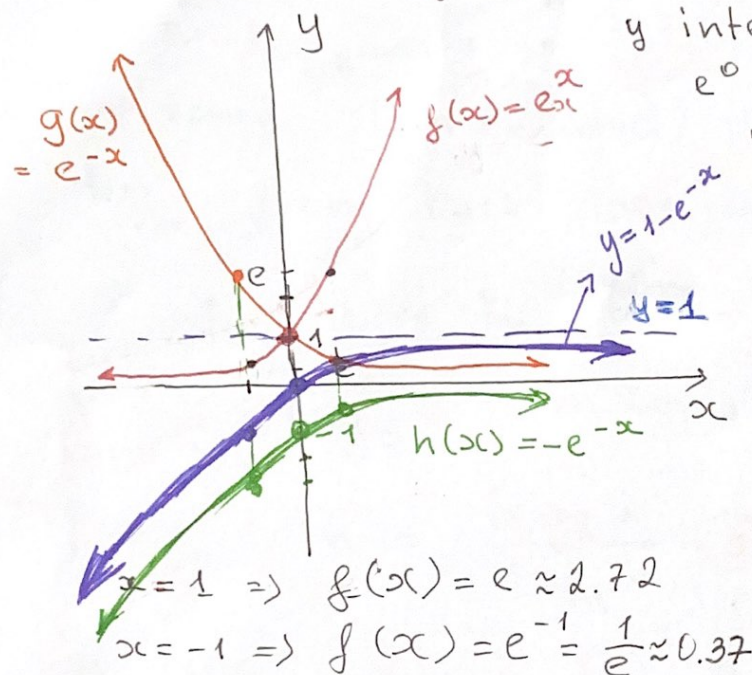 y
y inte
e⁰
g(x)
= e⁻ˣ
f(x) = eˣ
y=1-e⁻ˣ
e
y=1
1
x
-1
h(x) = -e⁻ˣ
x = 1 => f(x) = e ≈ 2.72
x = -1 => f(x) = e⁻¹ = 1/e ≈ 0.37